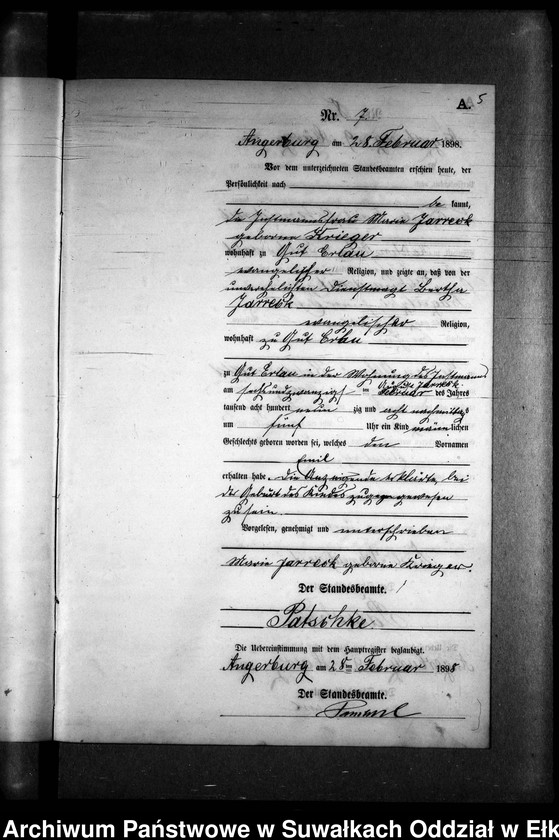 A. 5
Nr. 7
Angerburg am 28. Februar 1898.
Vor dem unterzeichneten Standesbeamten erschien heute, der
Persönlichkeit nach
be kannt,
die Instmannsfrau Marie Jarreck
geborene Krieger
wohnhaft zu Gut Erlau
evangelischer Religion, und zeigte an, daß von der
unverehelichten Dienstmagd Bertha
Jarreck
evangelischer Religion,
wohnhaft zu Gut Erlau
zu Gut Erlau in der Wohnung des Instmanns
Jarreck
am sechsundzwanzigst en Februar des Jahres
tausend acht hundert neun zig und acht nachmittags
um fünf Uhr ein Kind männ lichen
Geschlechts geboren worden sei, welches den Vornamen
Emil
erhalten habe. Die Anzeigende erklärte, bei
der Geburt des Kindes zugegen gewesen
zu sein.
Vorgelesen, genehmigt und unterschrieben
Marie Jarreck geborne Krieger.
Der Standesbeamte.
Patschke
Die Uebereinstimmung mit dem Hauptregister beglaubigt.
Angerburg am 28ten Februar 1898
Der Standesbeamte.
Archiwum Państwowe w Suwałkach Oddział w Ełk